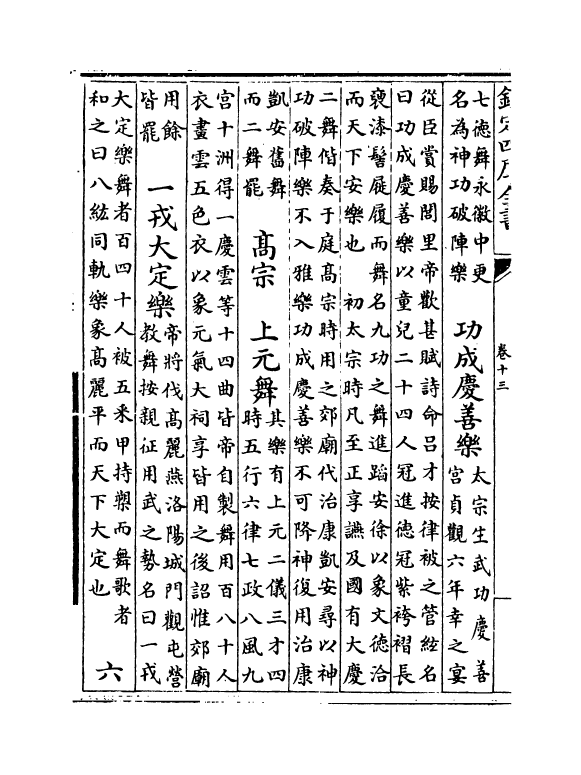 欽定四庫全書
卷十三
七德舞永徽中更
名為神功破陣樂
功成慶善樂
太宗生武功慶善
宮貞觀六年幸之宴
從臣賞賜閭里帝歡甚賦詩命呂才按律被之管絃名
曰功成慶善樂以童兒二十四人冠進德冠紫袴褶長
褎漆髻屣履而舞名九功之舞進蹈安徐以象文德洽
而天下安樂也 初太宗時凡至正享讌及國有大慶
二舞偕奏于庭髙宗時用之郊廟代治康凱安尋以神
功破陣樂不入雅樂功成慶善樂不可降神復用治康
凱安舊舞
而二舞罷
髙宗 上元舞
其樂有上元二儀三才四
時五行六律七政八風九
宮十洲得一慶雲等十四曲皆帝自製舞用百八十人
衣畫雲五色衣以象元氣大祠享皆用之後詔惟郊廟
用餘
皆罷
一戎大定樂
帝將伐髙麗燕洛陽城門觀屯營
教舞按親征用武之勢名曰一戎
大定樂舞者百四十人被五采甲持槊而舞歌者
和之曰八紘同軌樂象髙麗平而天下大定也
六